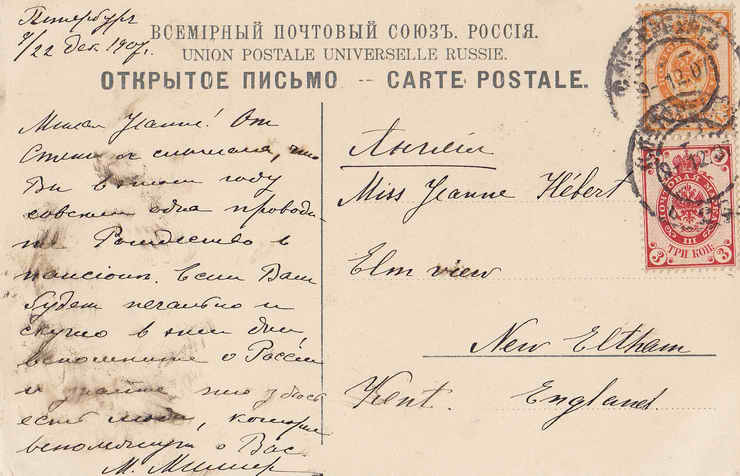 Петербург
9/22 Дек. 1907.
ВСЕМІРНЫЙ ПОЧТОВЫЙ СОЮЗЪ. РОССІЯ.
UNION POSTALE UNIVERSELLE RUSSIE.
ОТКРЫТОЕ ПИСЬМО -- CARTE POSTALE.
Милая Jeanne! От
Стени я слышала, что
Вы в этом году
совсем одна проводи-
те Рождество в
пансіоне. Если Вам
будет печально и
скучно в эти дни
вспомните о Россіи
и знайте, что здѣсь
есть люди, которые
вспоминают о Вас.
М. Миллер
Англія
Miss Jeanne Hébert
Elm view
New Eltham
Kent. England
ТРИ КОП.
3 3